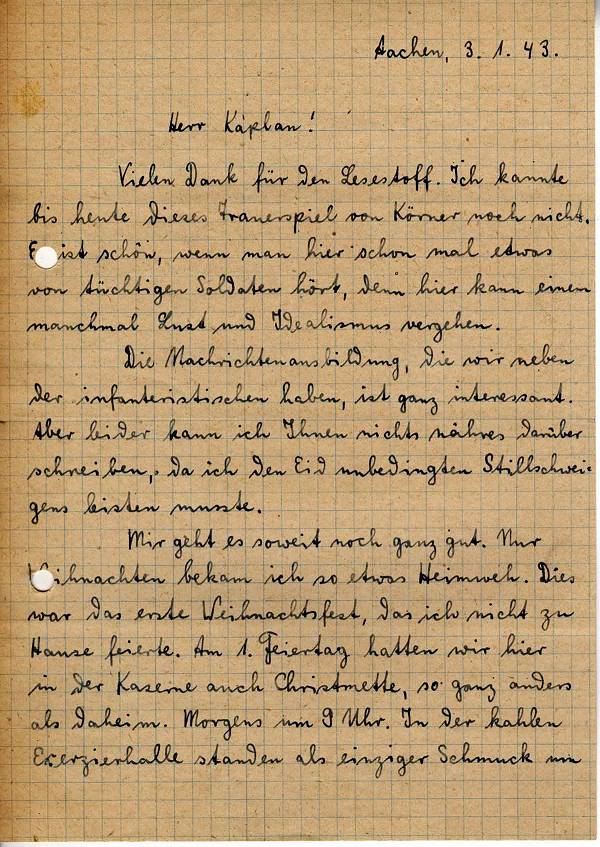 Aachen, 3. 1. 43.
Herr Kaplan!
Vielen Dank für den Lesestoff. Ich kannte
bis heute dieses Trauerspiel von Körner noch nicht.
Es ist schön, wenn man hier schon mal etwas
von tüchtigen Soldaten hört, denn hier kann einem
manchmal Lust und Idealismus vergehen.
Die Nachrichtenausbildung, die wir neben
der infanteristischen haben, ist ganz interessant.
Aber leider kann ich Ihnen nichts nähres darüber
schreiben, da ich den Eid unbedingten Stillschwei-
gens leisten musste.
Mir geht es soweit noch ganz gut. Nur
Weihnachten bekam ich so etwas Heimweh. Dies
war das erste Weihnachtsfest, das ich nicht zu
Hause feierte. Am 1. Feiertag hatten wir hier
in der Kaserne auch Christmette, so ganz anders
als daheim. Morgens um 9 Uhr. In der kahlen
Exerzierhalle standen als einziger Schmuck nur